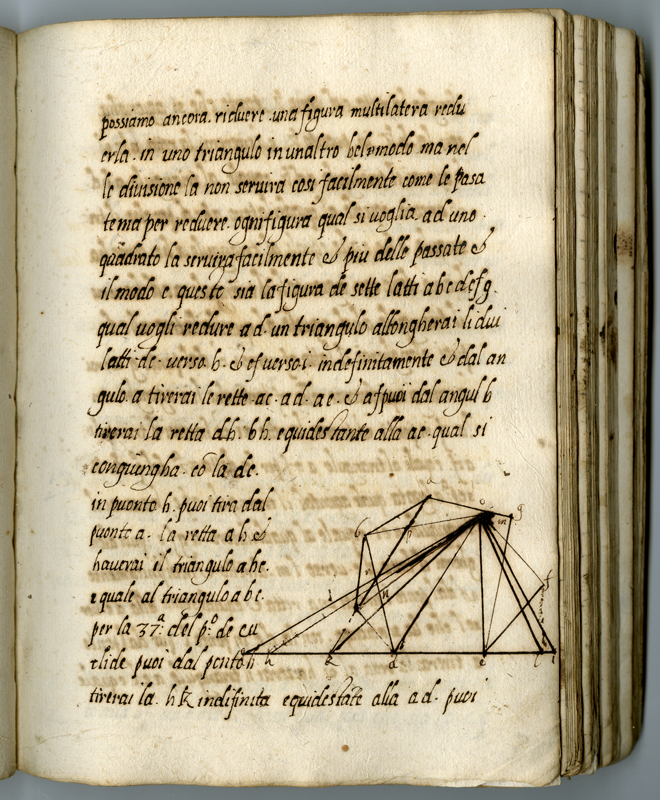 possiamo ancora. riduere. una figura multilatera redu
erla. in uno triangulo in unaltro bel modo ma nel
le divisione la non servira cosi facilmente come le pasa
te ma per reduere. ogni figura qual si voglia ad uno.
quadrato la servira facilmente & piu delle passate &
il modo e. questo sia la figura de sette latti abcdefg.
qual vogli redure ad. un triangulo allongherai li dui
latti de. verso. h. & ef verso i. indefinitamente & dal an
gulo. a tirerai le rette. ac. ad. ae. & af puoi dal angul b
tirerai la retta dh. bh. equidestante alla ac. qual si
congiungha. cō la de.
in puonto h. puoi tira dal
puonto a. la retta ah &
haverai il triangulo ahc.
equale al triangulo abc.
per la 37.ª del p.º de eu
clide puoi dal ponto h
tirerai la. hk indifinita equidestāte alla ad. puoi
a
g
b
m
f
n
h
k
d
e
l
i